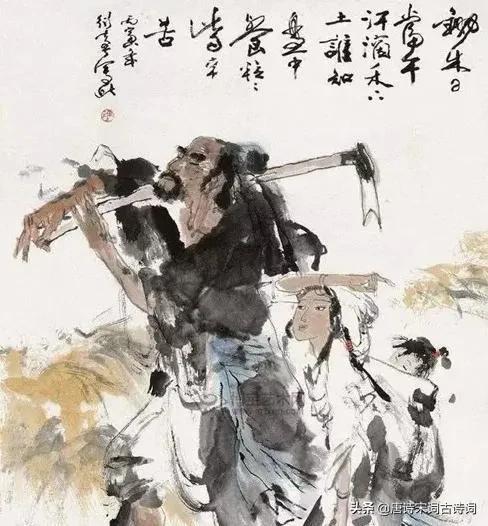 鋤禾日
當午
汗滴禾下
土誰知
盘中
餐粒々
皆辛
苦
丙寅年
头条 @唐诗宋词古诗词